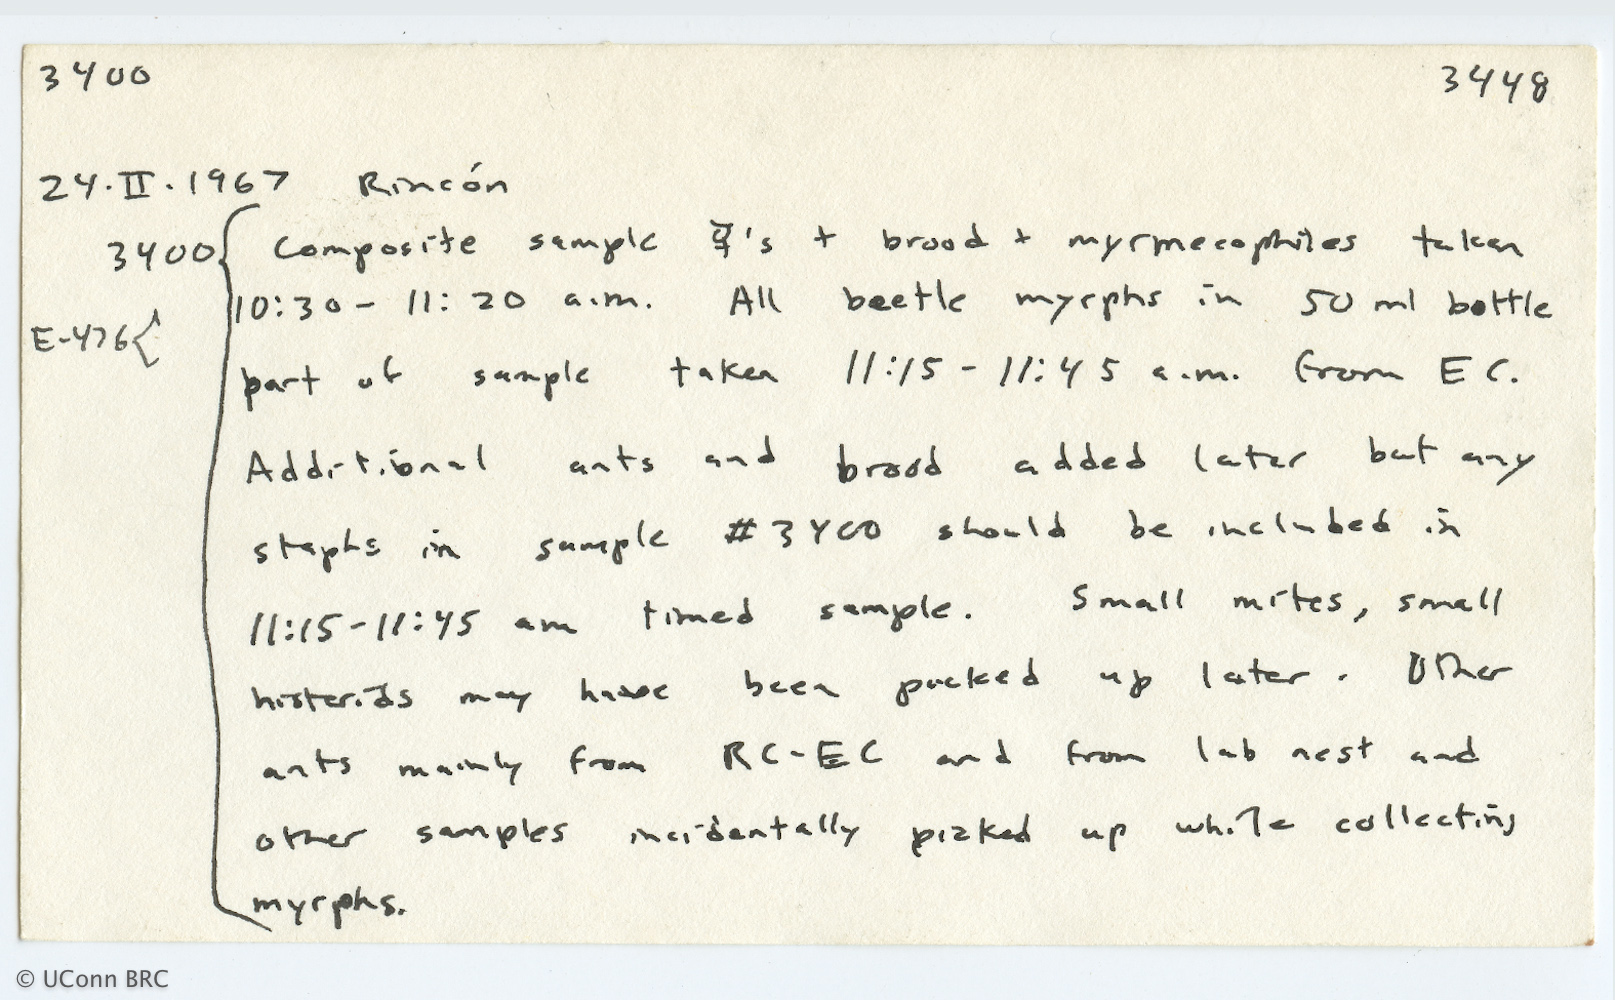 3400 3448
24.II.1967 Rincón
3400 { Composite sample ☿'s + brood + myrmecophiles taken
10:30 - 11:20 a.m. All beetle myrphs in 50 ml bottle
E-476 {
part of sample taken 11:15 - 11:45 a.m. from EC.
Additional ants and brood added later but any
staphs in sample #3400 should be included in
11:15-11:45 am timed sample. Small mites, small
histerids may have been picked up later. Other
ants mainly from RC-EC and from lab nest and
other samples incidentally picked up while collecting
myrphs.
© UConn BRC